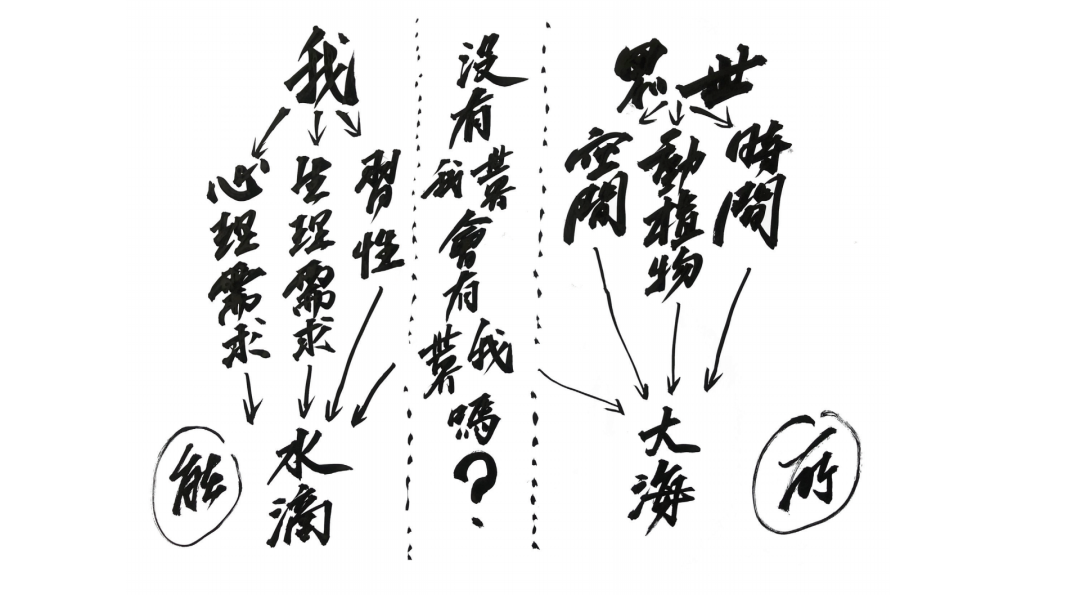 世界
時間
動植物
空間
大海
所
沒有
世界
我
會有
我
世界
嗎?
我
習性
生理需求
心理需求
水滴
能